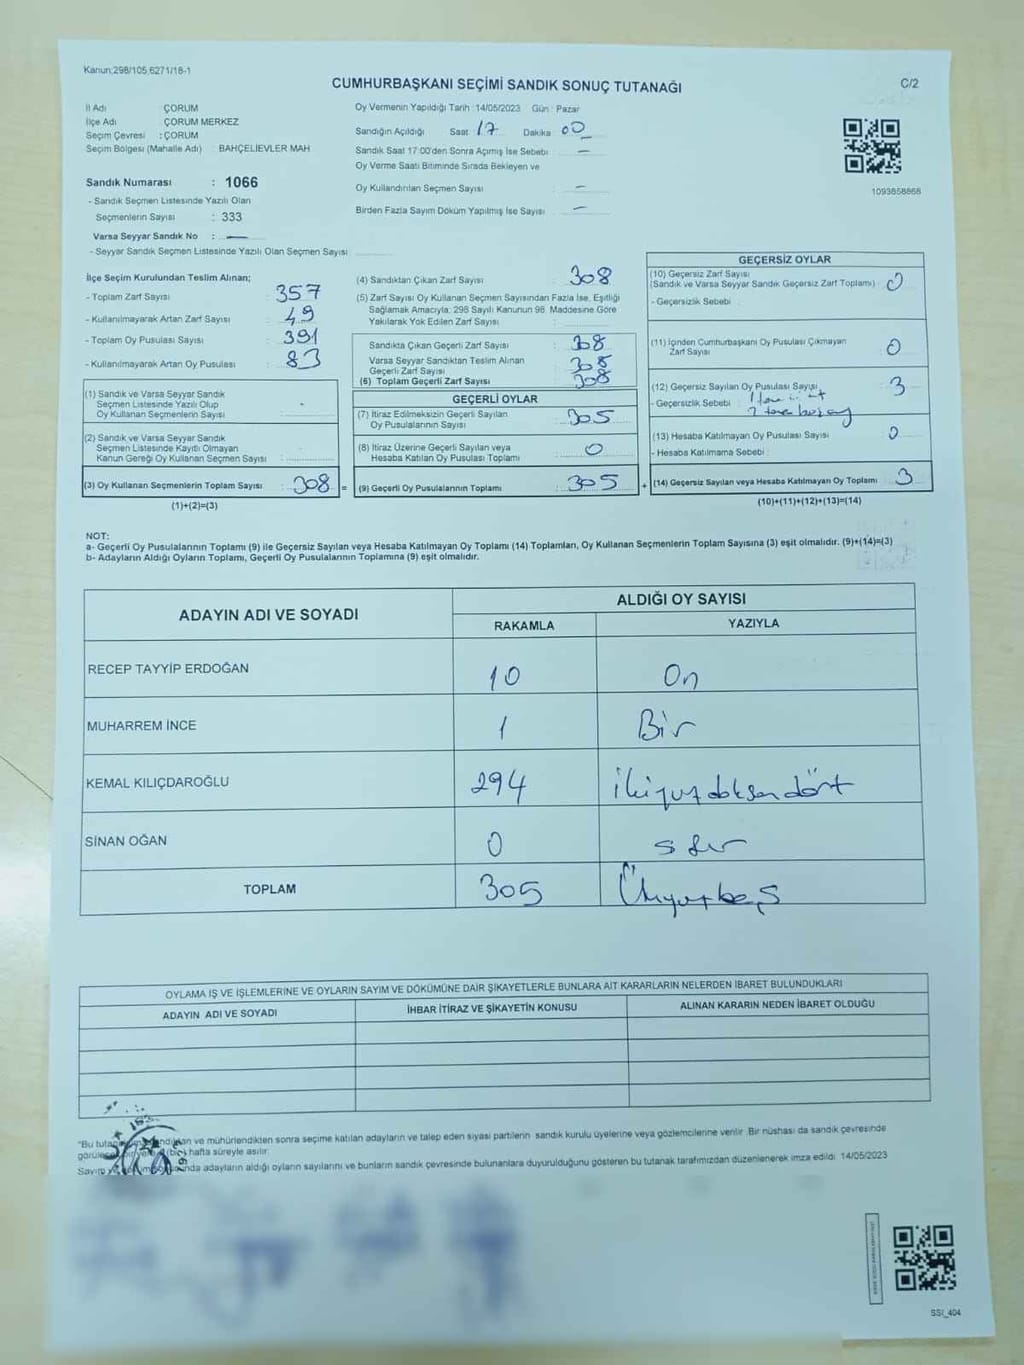 Kanun;298/105,6271/18-1
CUMHURBAŞKANI SEÇİMİ SANDIK SONUÇ TUTANAĞI
C/2
İl Adı : ÇORUM
İlçe Adı : ÇORUM MERKEZ
Seçim Çevresi : ÇORUM
Seçim Bölgesi (Mahalle Adı) : BAHÇELİEVLER MAH
Sandık Numarası : 1066
- Sandık Seçmen Listesinde Yazılı Olan
Seçmenlerin Sayısı : 333
Varsa Seyyar Sandık No : —
- Seyyar Sandık Seçmen Listesinde Yazılı Olan Seçmen Sayısı
Oy Vermenin Yapıldığı Tarih :14/05/2023 Gün : Pazar
Sandığın Açıldığı Saat 17 Dakika 00
Sandık Saat 17:00'den Sonra Açımış İse Sebebi : —
Oy Verme Saati Bitiminde Sırada Bekleyen ve
Oy Kullandırılan Seçmen Sayısı : —
Birden Fazla Sayım Döküm Yapılmış İse Sayısı : —
1093858868
İlçe Seçim Kurulundan Teslim Alınan;
- Toplam Zarf Sayısı : 357
- Kullanılmayarak Artan Zarf Sayısı : 49
- Toplam Oy Pusulası Sayısı : 391
- Kullanılmayarak Artan Oy Pusulası : 83
(1) Sandık ve Varsa Seyyar Sandık
Seçmen Listesinde Yazılı Olup
Oy Kullanan Seçmenlerin Sayısı : -
(2) Sandık ve Varsa Seyyar Sandık
Seçmen Listesinde Kayıtlı Olmayan
Kanun Gereği Oy Kullanan Seçmen Sayısı :
(3) Oy Kullanan Seçmenlerin Toplam Sayısı : 308 =
(1)+(2)=(3)
(4) Sandıktan Çıkan Zarf Sayısı : 308
(5) Zarf Sayısı Oy Kullanan Seçmen Sayısından Fazla İse, Eşitliği
Sağlamak Amacıyla; 298 Sayılı Kanunun 98. Maddesine Göre
Yakılarak Yok Edilen Zarf Sayısı :
Sandıkta Çıkan Geçerli Zarf Sayısı : 308
Varsa Seyyar Sandıktan Teslim Alınan
Geçerli Zarf Sayısı : 308
(6) Toplam Geçerli Zarf Sayısı : 308
GEÇERLİ OYLAR
(7) İtiraz Edilmeksizin Geçerli Sayılan
Oy Pusulalarının Sayısı : 305
(8) İtiraz Üzerine Geçerli Sayılan veya
Hesaba Katılan Oy Pusulası Toplamı : 0
(9) Geçerli Oy Pusulalarının Toplamı : 305 +
GEÇERSİZ OYLAR
(10) Geçersiz Zarf Sayısı
(Sandık ve Varsa Seyyar Sandık Geçersiz Zarf Toplamı) : 0
- Geçersizlik Sebebi :
(11) İçinden Cumhurbaşkanı Oy Pusulası Çıkmayan
Zarf Sayısı : 0
(12) Geçersiz Sayılan Oy Pusulası Sayısı : 3
- Geçersizlik Sebebi : 1 tane
2 tane
(13) Hesaba Katılmayan Oy Pusulası Sayısı : 0
- Hesaba Katılmama Sebebi :
(14) Geçersiz Sayılan veya Hesaba Katılmayan Oy Toplamı : 3
(10)+(11)+(12)+(13)=(14)
NOT:
a- Geçerli Oy Pusulalarının Toplamı (9) ile Geçersiz Sayılan veya Hesaba Katılmayan Oy Toplamı (14) Toplamları, Oy Kullanan Seçmenlerin Toplam Sayısına (3) eşit olmalıdır. (9)+(14)=(3)
b- Adayların Aldığı Oyların Toplamı, Geçerli Oy Pusulalarının Toplamına (9) eşit olmalıdır.
ADAYIN ADI VE SOYADI
ALDIĞI OY SAYISI
RAKAMLA YAZIYLA
RECEP TAYYİP ERDOĞAN 10 On
MUHARREM İNCE 1 Bir
KEMAL KILIÇDAROĞLU 294 İkiyüzdoksandört
SİNAN OĞAN 0 sıfır
TOPLAM 305 Üçyüzbeş
OYLAMA İŞ VE İŞLEMLERİNE VE OYLARIN SAYIM VE DÖKÜMÜNE DAİR ŞİKAYETLERLE BUNLARA AİT KARARLARIN NELERDEN İBARET BULUNDUKLARI
ADAYIN ADI VE SOYADI İHBAR İTİRAZ VE ŞİKAYETİN KONUSU ALINAN KARARIN NEDEN İBARET OLDUĞU
"Bu ve mühürlendikten sonra seçime katılan adayların ve talep eden siyasi partilerin sandık kurulu üyelerine veya gözlemcilerine verilir .Bir nüshası da sandık çevresinde
(bir) hafta süreyle asılır.
adayların aldığı oyların sayılarını ve bunların sandık çevresinde bulunanlara duyurulduğunu gösteren bu tutanak tarafımızdan düzenlenerek imza edildi. 14/05/2023
SSI_404